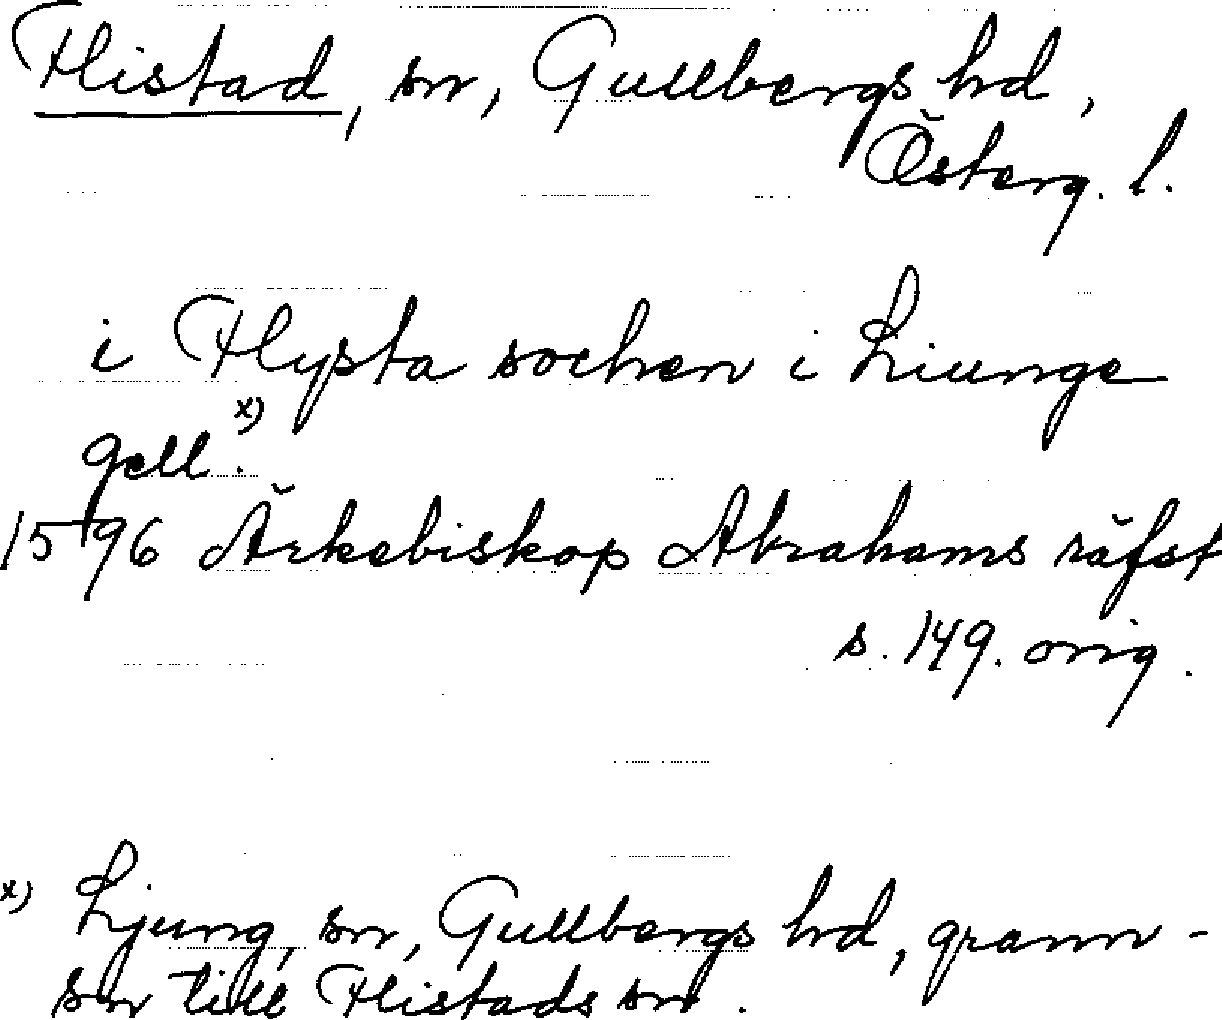 Flistad, sn, Gullbergs hd,
Österg. l.
i Flysta sochen i Liunge
gell.x)
1596 Ärkebiskop Abrahams räfst
s. 149. orig.
x) Ljung, sn, Gullbergs hd, grann-
sn till Flistads sn.